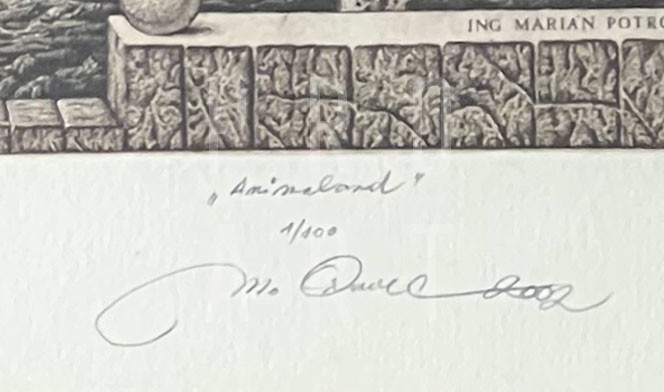 ING MARIÁN POTRO
„Animaland"
1/100
2002